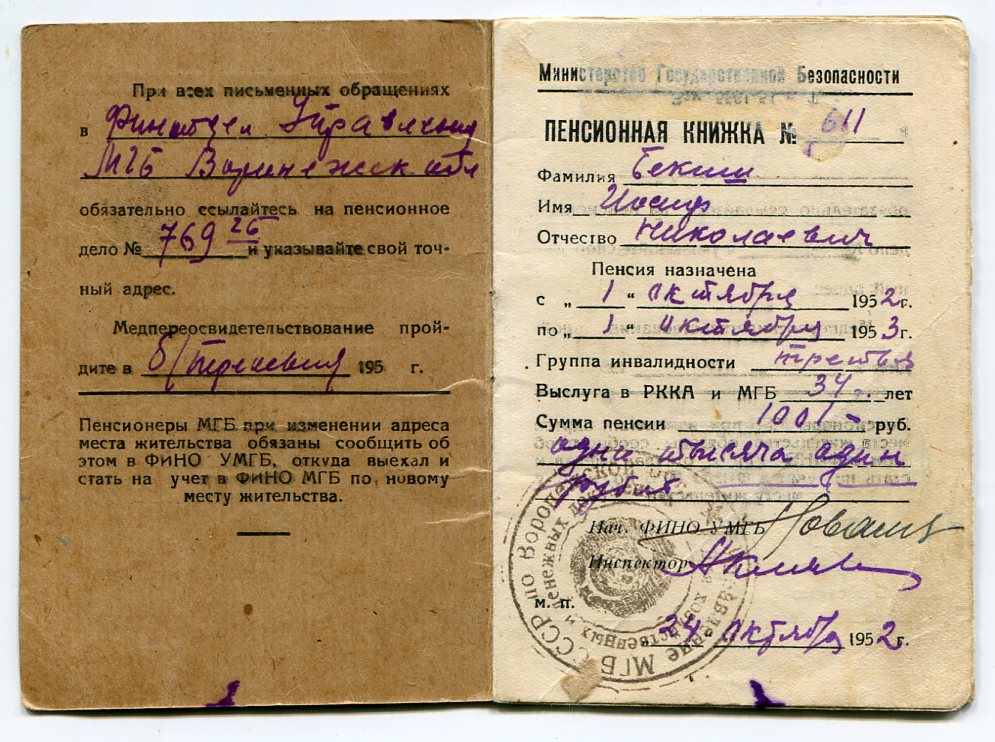 При всех письменных обращениях
в Финотдел Управления
МГБ Воронежск обл
обязательно ссылайтесь на пенсионное
дело № 769 26 и указывайте свой точ-
ный адрес.
Медпереосвидетельствование пройдите
дите в 195 г.
Пенсионеры МГБ при изменении адреса
места жительства обязаны сообщить об
этом в ФИНО УМГБ, откуда выехал и
стать на учет в ФИНО МГБ по новому
месту жительства.
Министерство Государственной Безопасности
ПЕНСИОННАЯ КНИЖКА № 611
Фамилия Бекиш
Имя Иосиф
Отчество Николаевич
Пенсия назначена
с „ 1 “ октября 1952 г.
по „ 1 “ октября 1953 г.
Группа инвалидности третья
Выслуга в РККА и МГБ 34 г. лет
Сумма пенсии 1001 руб.
одна тысяча один
рубль
Нач. ФИНО УМГБ
Инспектор
м. п.
24 октября 1952 г.